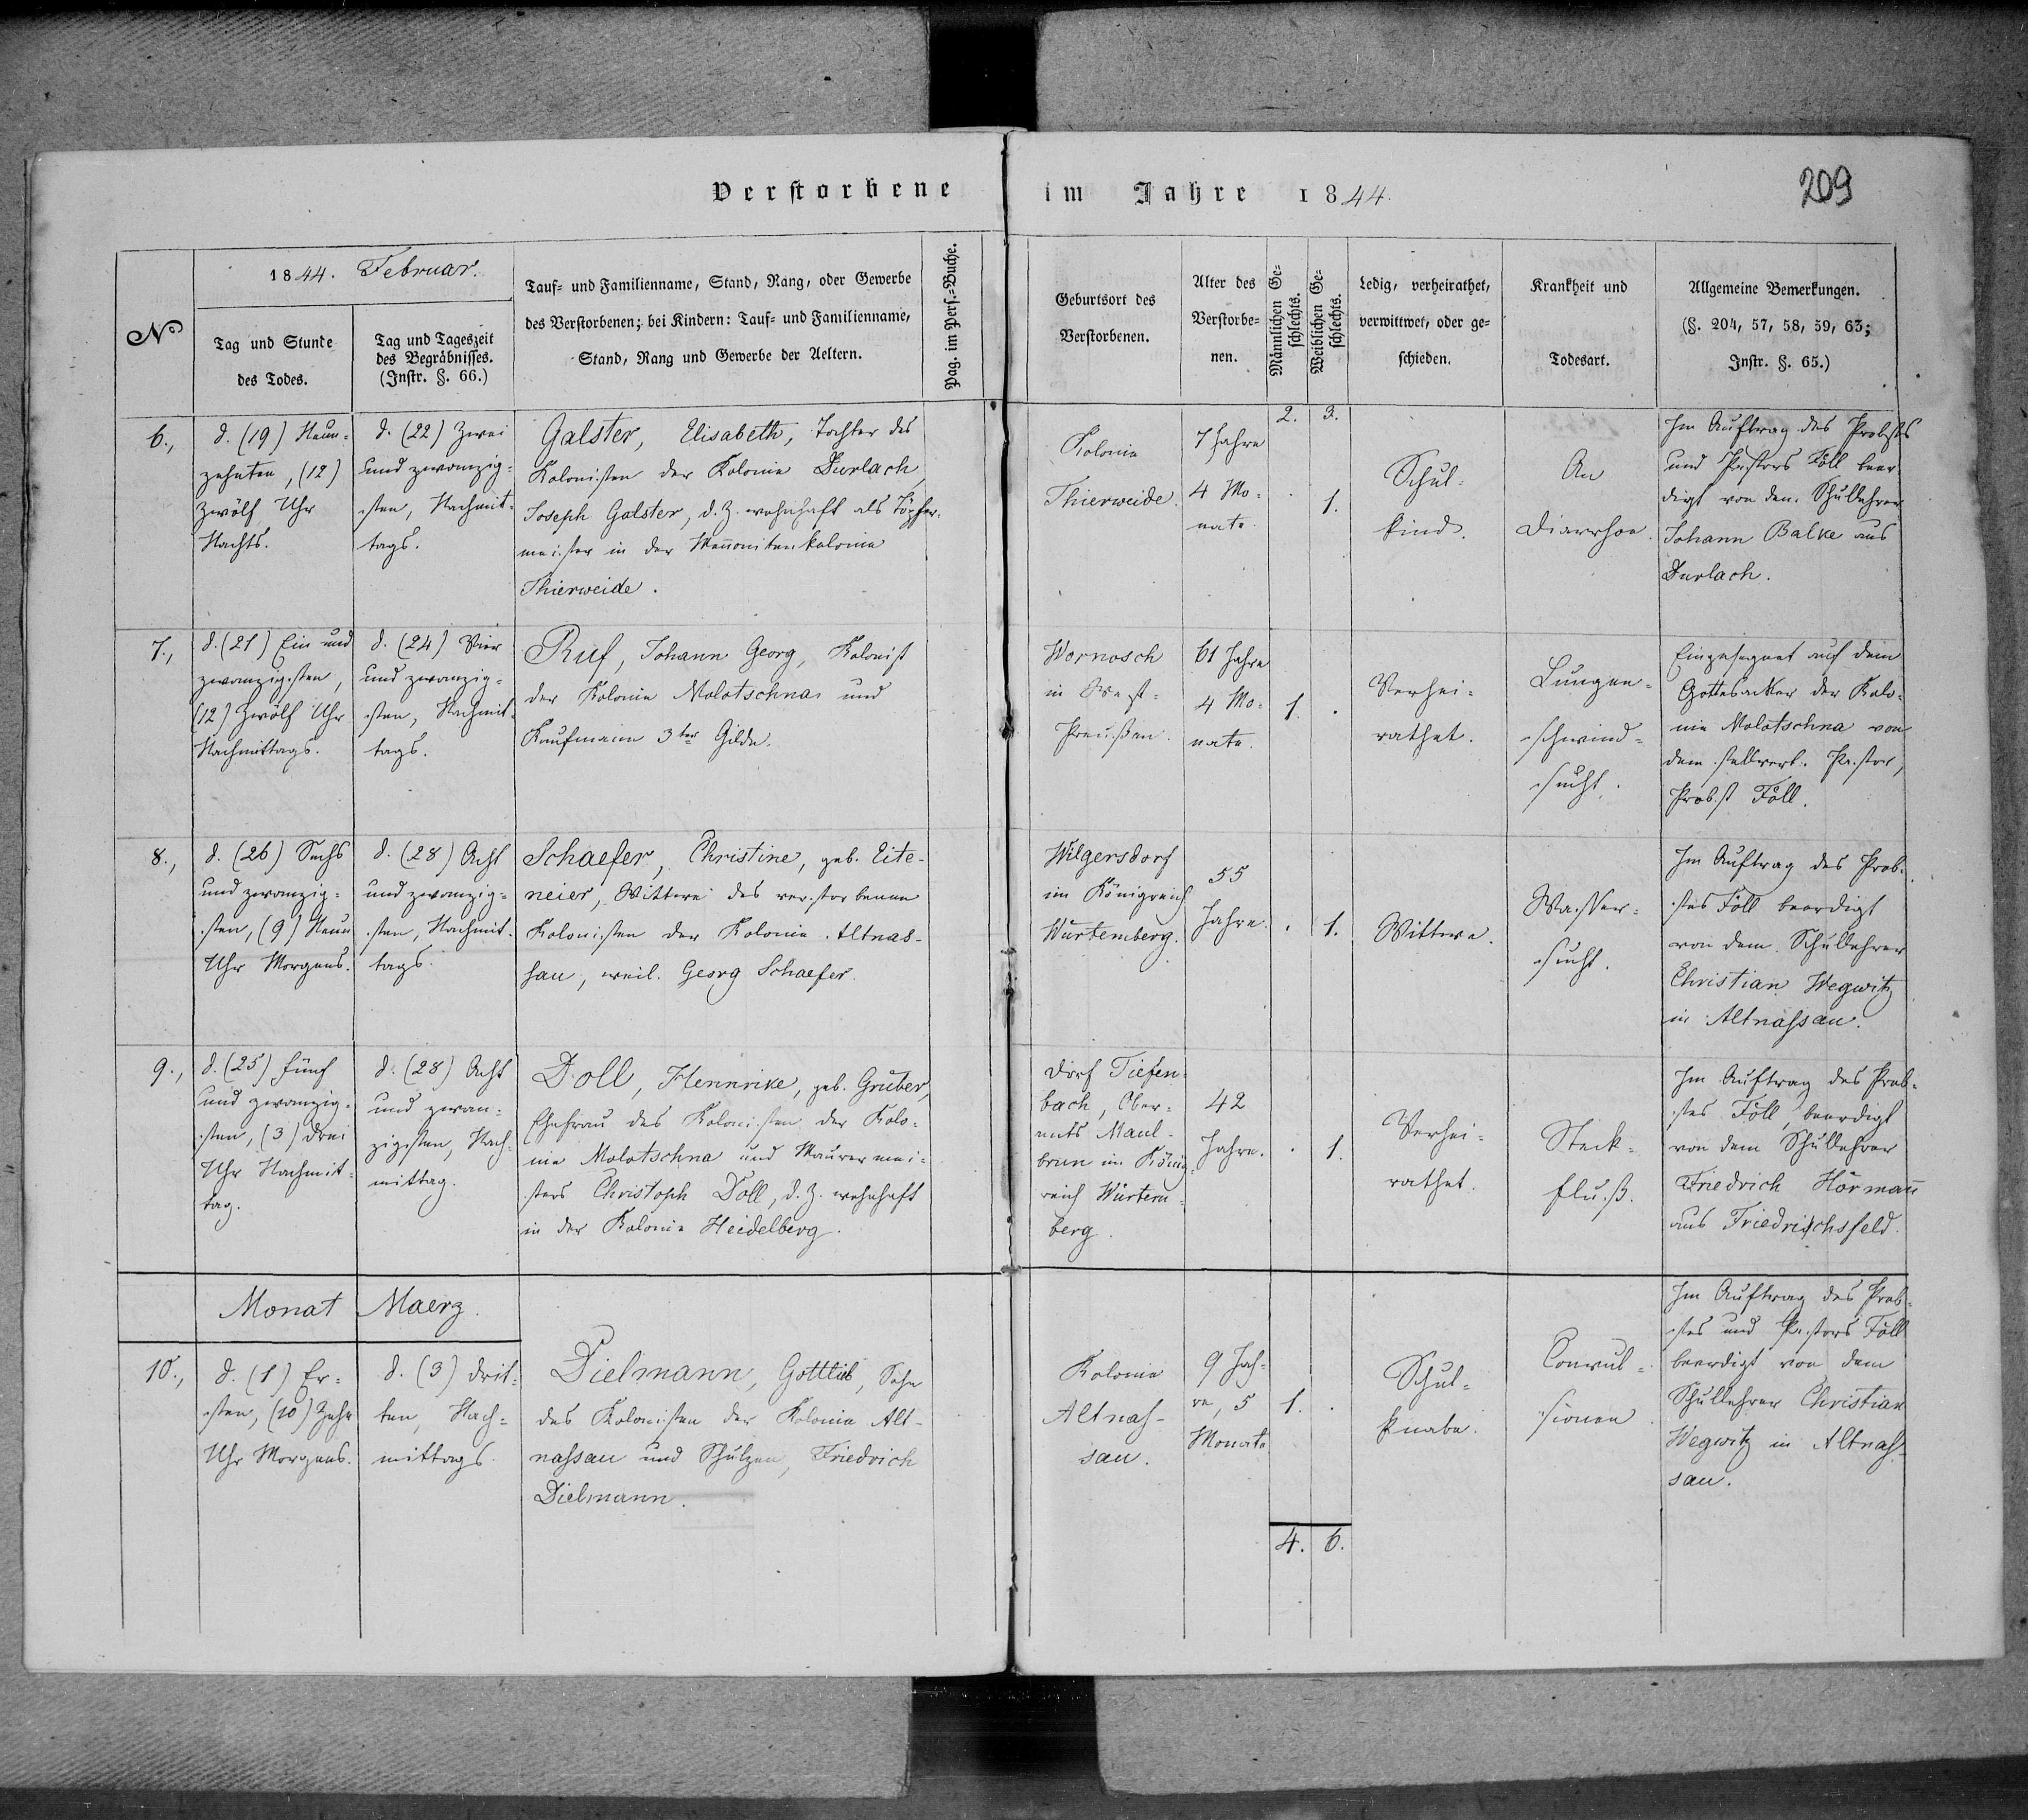 Verstorbene im Jahre 1844.
209
No
1844. Februar.
Tag und Stunde
des Todes.
Tag und Tageszeit
des Begräbnisses.
(Instr. §. 66.)
Tauf- und Familienname, Stand, Rang, oder Gewerbe
des Verstorbenen; bei Kindern: Tauf- und Familienname,
Stand, Rang und Gewerbe der Aeltern.
Pag. im Pers.-Buche.
Geburtsort des
Verstorbenen.
Alter des
Verstorbe-
nen.
Männlichen Ge-
schlechts.
Weiblichen Ge-
schlechts.
Ledig, verheirathet,
verwittwet, oder ge-
schieden.
Krankheit und
Todesart.
Allgemeine Bemerkungen.
(§. 204, 57, 58, 59, 63;
Instr. §. 65.)
2. 3.
6.,
d. (19) Neun-
zehnten, (12)
zwölf Uhr
Nachts.
d. (22) Zwei
und zwanzig-
sten, Nachmit-
tags.
Galster, Elisabeth, Tochter des
Kolonisten der Kolonie Durlach,
Joseph Galster, d. Z. wohnhaft als Töpfer-
meister in der Mennonitenkolonie
Thierweide.
Kolonie
Thierweide.
7 Jahre
4 Mo-
nate.
. 1.
Schul-
kind.
An
Diarrhoe.
Im Auftrag des Probsts
und Pastors Föll beer
digt von dem Schullehrer
Johann Balke aus
Durlach.
7.,
d. (21) Ein und
zwanzigsten,
(12) Zwölf Uhr
Nachmittags.
d. (24) Vier
und zwanzig-
sten, Nachmit-
tags.
Ruf, Johann Georg, Kolonist
der Kolonie Molotschna und
Kaufmann 3ter Gilde.
Wornosch
in West-
Preußen.
61 Jahre
4 Mo-
nate.
1. .
Verhei-
rathet.
Lungen-
schwind-
sucht.
Eingesegnet auf dem
Gottesacker der Kolo-
nie Molotschna von
dem stellvert. Pastor,
Probst Föll.
8.,
d. (26) Sechs
und zwanzig-
sten, (9) Neun
Uhr Morgens.
d. (28) Acht
und zwanzig-
sten, Nachmit-
tags.
Schaefer, Christine, geb. Lite-
neier, Wittwe des verstorbenen
Kolonisten der Kolonie Altnas-
sau, weil. Georg Schaefer.
Wilgersdorf
im Königreich
Würtemberg.
55
Jahre.
. 1.
Wittwe.
Wasser-
sucht.
Im Auftrag des Prob-
stes Föll beerdigt
von dem Schullehrer
Christian Wegwitz
in Altnassau.
9.,
d. (25) fünf
und zwanzig-
sten, (3) drei
Uhr Nachmit-
tag.
d. (28) Acht
und zwan-
zigsten, Nach-
mittag.
Doll, Hennrike, geb. Gruber,
Ehefrau des Kolonisten der Kolo-
nie Molotschna und Maurermei-
sters Christoph Doll, d. Z. wohnhaft
in der Kolonie Heidelberg.
Dorf Tiefen-
bach, Ober-
amts Maul-
brun im König-
reich Würtem-
berg.
42
Jahre.
. 1.
Verhei-
rathet.
Steck-
fluß.
Im Auftrag des Prob-
stes Föll, beerdigt
von dem Schullehrer
Friedrich Hörmann
aus Friedrichsfeld.
Monat Maerz.
10.,
d. (1) Er-
sten, (10) Zehn
Uhr Morgens.
d. (3) drit-
ten, Nach-
mittags.
Dielmann, Gottlieb, Sohn
des Kolonisten der Kolonie Alt-
nassau und Schulzen, Friedrich
Dielmann.
Kolonie
Altnas-
sau.
9 Jah-
re, 5
Monate
1. .
Schul-
knabe.
Convul-
sionen.
Im Auftrag des Prob-
stes und Pastors Föll
beerdigt von dem
Schullehrer Christian
Wegwitz in Altnas-
sau.
4. 6.